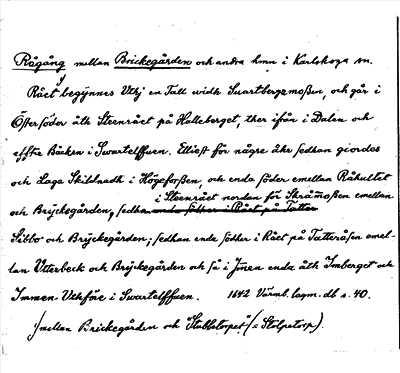 Rågång mellan Brickegården och andra hmn i Karlskoga sn.
Rået begynnes Vthj en Tall widh Suartbergzmoßen, och går i
Öster söder åth Steenrået på Halleberget, ther ifrån i Dalen och
effter Bäcken i Swartelffuen. Elliest för några åhr sedhan giordes
och Laga Skildnadh i Högeforßen, och enda söder emellan Råhultet
i Steenrået nordan för Skråmoßen emellan
och Bryckegården, sedhan enda södher i Rået på Tatter
Sibbo och Bryckegården; sedhan enda södher i Rået på Tatteråsen emel-
lan Vtterbeck och Bryckegården och så i Jönen enda åth Imberget och
Immen Vthföre i Swartelffuen. 1642 Värml. lagm. db s. 40.
mellan Brickegården och "Stabbetorpet" (= Stolpetorp).